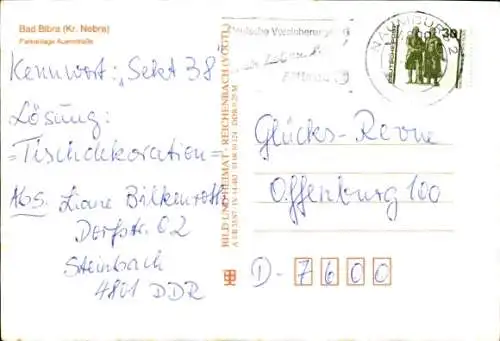 Bad Bibra (Kr. Nebra)
Parkanlage Auenstraße
Kennwort: „Sekt 38"
Lösung:
=Tischdekoration=
Abs. Liane Bilkenroth
Dorfstr. 02
Steinbach
4801 DDR
BILD UND HEIMAT · REICHENBACH (VOGTL)
NAUMBURG
2
30
Glücks-Revue
Offenburg 100
D-7600